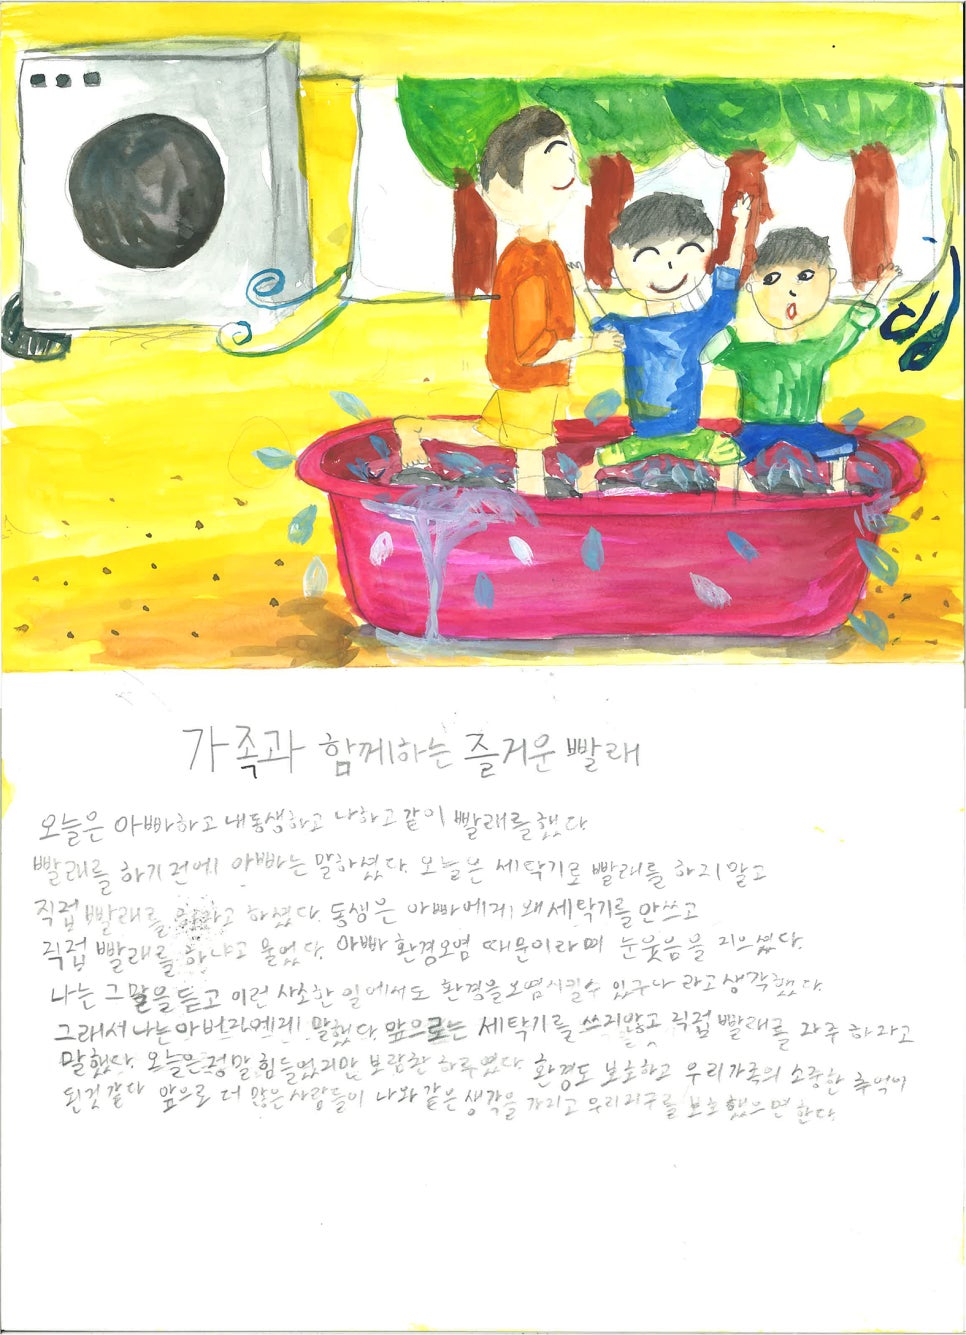 가족과 함께하는 즐거운 빨래
오늘은 아빠하고 내동생하고 나하고 같이 빨래를 했다
빨래를 하기 전에 아빠는 말하셨다. 오늘은 세탁기로 빨래를 하지 말고
직접 빨래를 하라고 하셨다. 동생은 아빠에게 왜 세탁기를 안쓰고
직접 빨래를 하냐고 물었다. 아빠 환경오염 때문이라며 눈웃음을 지으셨다.
나는 그 말을 듣고 이런 사소한 일에서도 환경을 오염시킬수 있구나 라고 생각했다
그래서 나는 아버지에게 말했다. 앞으로는 세탁기를 쓰지않고 직접 빨래를 자주 하라고
말했다. 오늘은 정말 힘들었지만 보람찬 하루였다. 환경도 보호하고 우리가족의 소중한 추억이
된것 같다 앞으로 더 많은 사람들이 나와 같은 생각을 가지고 우리지구를 보호했으면 한다.